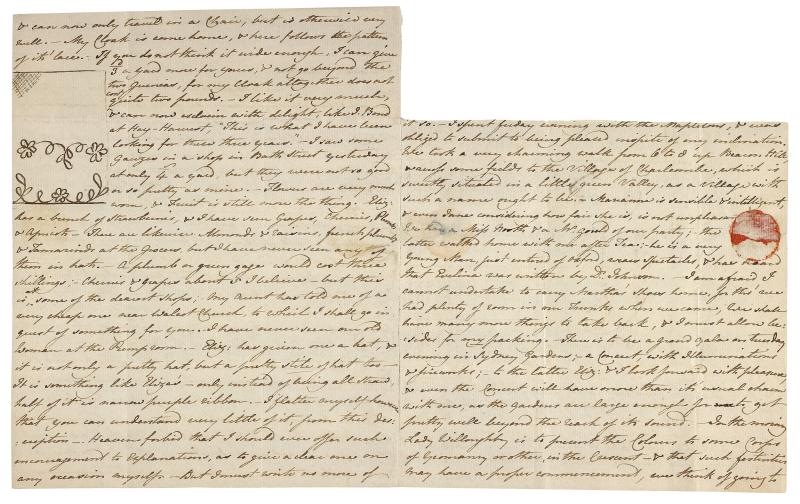 & can now only travel in a Chair, but is otherwise very
well. - My Cloak is come home, & here follows the pattern
of its' lace. - If you do not think it wide enough, I can give
3d a yard more for yours, & not go beyond the
two Guineas, for my Cloak altogether does not
cost quite two pounds. - I like it very much,
& can now exclaim with delight, like J. Bond
at Hay-Harvest, "This is what I have been
looking for these three years." - I saw some
Gauzes in a shop in Bath Street yesterday
at only 4 a yard, but they were not so good
or so pretty as mine. - Flowers are very much
worn, & Fruit is still more the thing. - Eliz:
has a bunch of Strawberries, & I have seen Grapes, Cherries, Plumbs
& Apricots - There are likewise Almonds & raisins, french plumbs
& Tamarinds at the Grocers, but I have never seen any of
them in hats. - A plumb or green gage would cost three
shillings; - Cherries & Grapes about 5 I believe - but this
is at some of the dearest Shops; - My Aunt has told me of a
very cheap one near Walcot Church, to which I shall go in
quest of something for you. - I have never seen an old
Woman at the Pump room. - Eliz: has given me a hat, &
it is not only a pretty hat, but a pretty stile of hat too -
It is something like Eliza's - only instead of being all straw,
half of it is narrow purple ribbon. - I flatter myself however
that you can understand very little of it, from this des:
:cription - Heaven forbid that I should ever offer such
encouragement to Explanations, as to give a clear one on
any occasion myself. - But I must write no more of
it so. - I spent friday evening with the Mapletons, & was
obliged to submit to being pleased inspite of my inclination.
We took a very charming walk from 6 to 8 up Beacon Hill,
& across some fields to the Village of Charlcombe, which is
sweetly situated in a little green Valley, as a Village with
such a name ought to be. - Marianne is sensible & intelligent,
& even Jane considering how fair she is, is not unpleasant.
We had a Miss North & a Mr Gould of our party; - the
latter walked home with me after Tea; - he is a very
Young Man, just entered of Oxford, wears Spectacles, & has heard
that Evelina was written by Dr Johnson. - I am afraid I
cannot undertake to carry Martha's Shoes home, for tho' we
had plenty of room in our Trunks when we came, We shall
have many more things to take back, & I must allow be:
:sides for my packing. - There is to be a grand gala on tuesday
evening in Sydney Gardens; - a Concert, with Illuminations
& fireworks; - to the latter Eliz: & I look forward with pleasure,
& even the Concert will have more than its' usual charm
with me, as the Gardens are large enough for me to get
pretty well beyond the reach of its sound. - In the morning
Lady Willoughby is to present the Colours to some Corps
of Yeomanry or other, in the Crescent - & that such festivities
may have a proper commencement, we think of going to